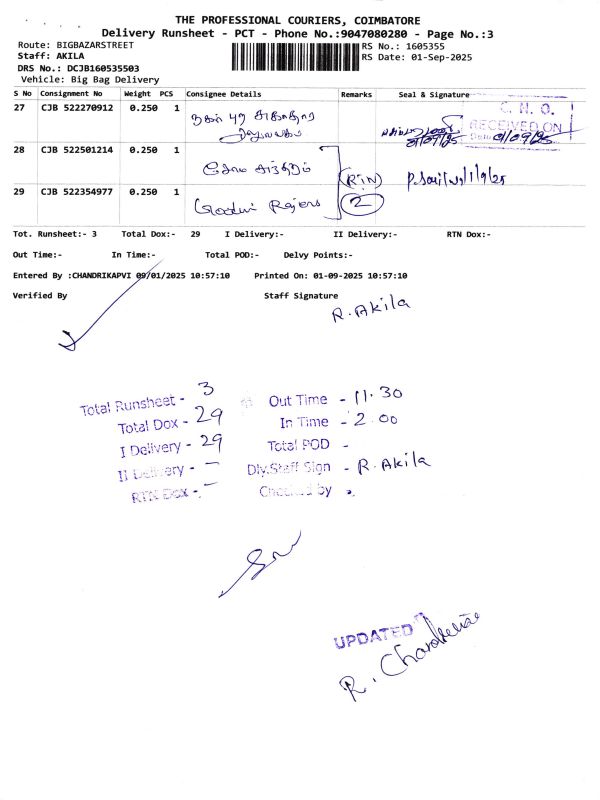 THE PROFESSIONAL COURIERS, COIMBATORE
Delivery Runsheet - PCT - Phone No.:9047080280 - Page No.:3
Route: BIGBAZARSTREET RS No.: 1605355
Staff: AKILA RS Date: 01-Sep-2025
DRS No.: DCJB160535503
Vehicle: Big Bag Delivery
S No Consignment No Weight PCS Consignee Details Remarks Seal & Signature
27 CJB 522270912 0.250 1 நகர் புற சுகாதார
C. H. O.
RECEIVED ON
Date 01/09/25
01/09/25
28 CJB 522501214 0.250 1
RTN P.
29 CJB 522354977 0.250 1 Goodwi Rajens 2
Tot. Runsheet:- 3 Total Dox:- 29 I Delivery:- II Delivery:- RTN Dox:-
Out Time:- In Time:- Total POD:- Delvy Points:-
Entered By :CHANDRIKAPVI 09/01/2025 10:57:10 Printed On: 01-09-2025 10:57:10
Verified By Staff Signature
R. Akila
Total Runsheet - 3 Out Time - 11.30
Total Dox - 29 In Time - 2.00
I Delivery - 29 Total POD -
II Delivery - – Dly.Staff Sign - R. Akila
RTN Dox - – Checked by -
UPDATED